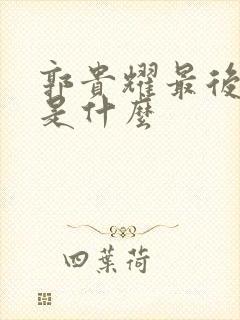 郭貴耀最後
是什麼
四葉荷